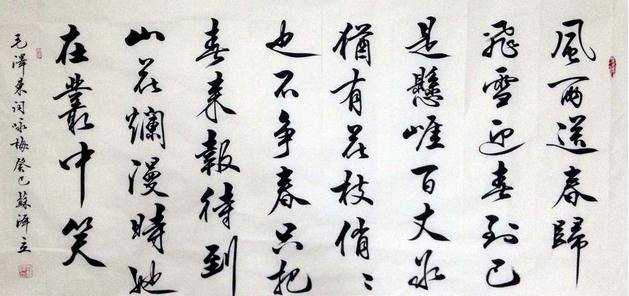 風雨送春歸
飛雪迎春到已
是懸崖百丈冰
猶有花枝俏〻
也不争春只把
春来報待到
山花爛漫時她
在叢中笑
毛澤東詞咏梅癸巳蘇澤立